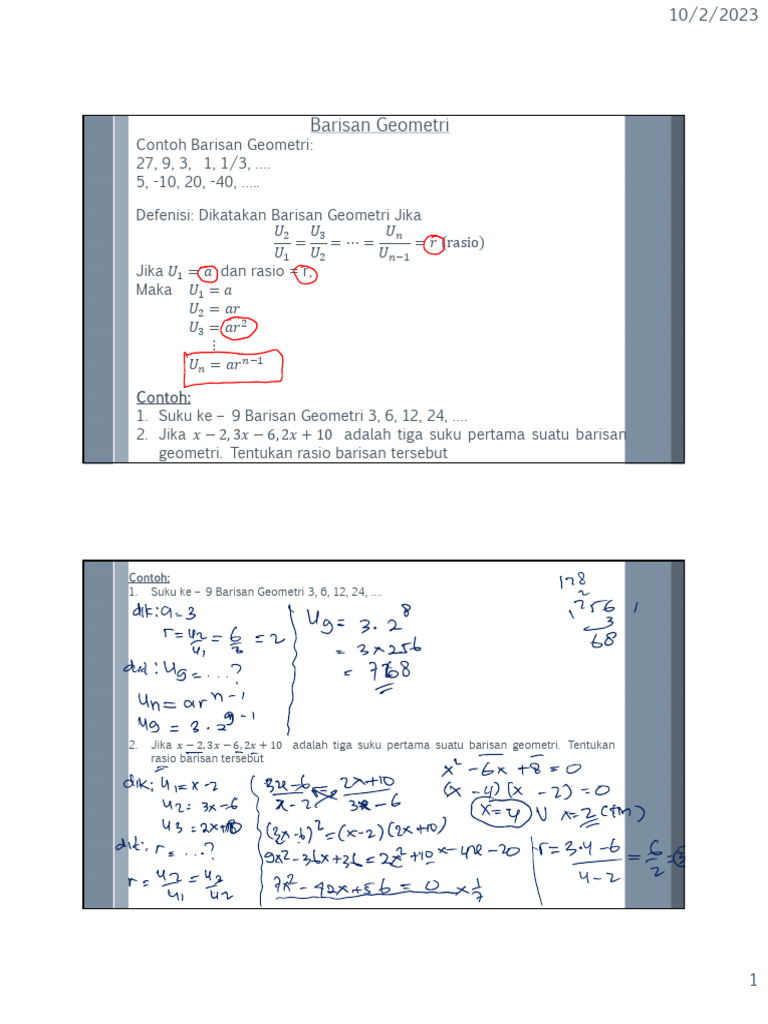 10/2/2023
Barisan Geometri
Contoh Barisan Geometri:
27, 9, 3, 1, 1/3, ....
5, -10, 20, -40, .....
Defenisi: Dikatakan Barisan Geometri Jika
U₂/U₁ = U₃/U₂ = ⋯ = Uₙ/Uₙ₋₁ = r (rasio)
Jika U₁ = a dan rasio = r,
Maka U₁ = a
U₂ = ar
U₃ = ar²
⋮
Uₙ = arⁿ⁻¹
Contoh:
1. Suku ke – 9 Barisan Geometri 3, 6, 12, 24, ....
2. Jika x − 2, 3x − 6, 2x + 10 adalah tiga suku pertama suatu barisan
geometri. Tentukan rasio barisan tersebut
Contoh:
1. Suku ke – 9 Barisan Geometri 3, 6, 12, 24, ....
dik: a = 3
r = u₂/u₁ = 6/3 = 2
dit: U₉ = ...?
Un = ar^(n-1)
U₉ = 3 . 2^(9-1)
U₉ = 3 . 2⁸
= 3 x 256
= 768
128
2
256
3
68
2. Jika x − 2, 3x − 6, 2x + 10 adalah tiga suku pertama suatu barisan geometri. Tentukan
rasio barisan tersebut
dik: U₁ = x - 2
U₂ = 3x - 6
U₃ = 2x + 10
dit: r = ...?
r = U₂/U₁ = U₃/U₂
(3x - 6)/(x - 2) = (2x + 10)/(3x - 6)
(3x - 6)² = (x - 2)(2x + 10)
9x² - 36x + 36 = 2x² + 10x - 4x - 20
7x² - 42x + 56 = 0 x 1/7
x² - 6x + 8 = 0
(x - 4)(x - 2) = 0
x = 4 V x = 2 (TM)
r = (3.4 - 6)/(4 - 2) = 6/2 = 3
1